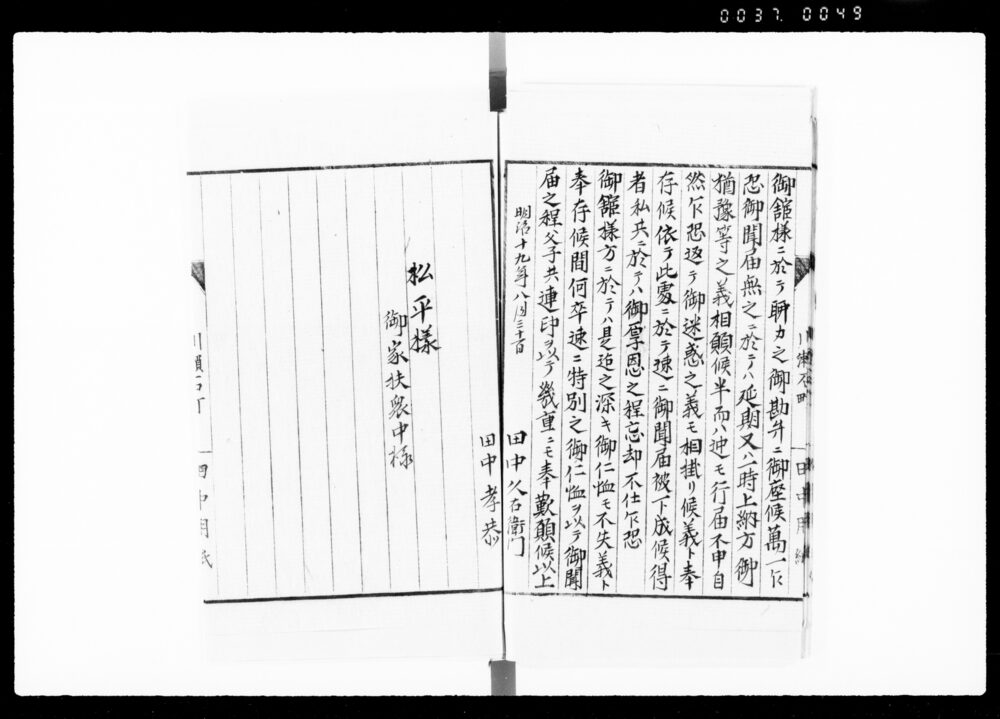 0037. 0049
御舘様ニ於テ聊カ之御勘弁ニ御座候萬一乍
恐御聞届無之ニ於テハ延期又ハ一時上納方御
猶豫等之義相願候半而ハ迚モ行届不申自
然乍恐返テ御迷惑之義モ相掛リ候義ト奉
存候依テ此處ニ於テ速ニ御聞届被下成候得
者私共ニ於テハ御厚恩之程忘却不仕乍恐
御舘様方ニ於テハ是迄之深キ御仁恤モ不失義ト
奉存候間何卒速ニ特別之御仁恤ヲ以テ御聞
届之程父子共連印ヲ以テ幾重ニモ奉歎願候以上
明治十九年八月三十日
田中久右衛門
田中孝恭
松平様
御家扶衆中様
田中用紙